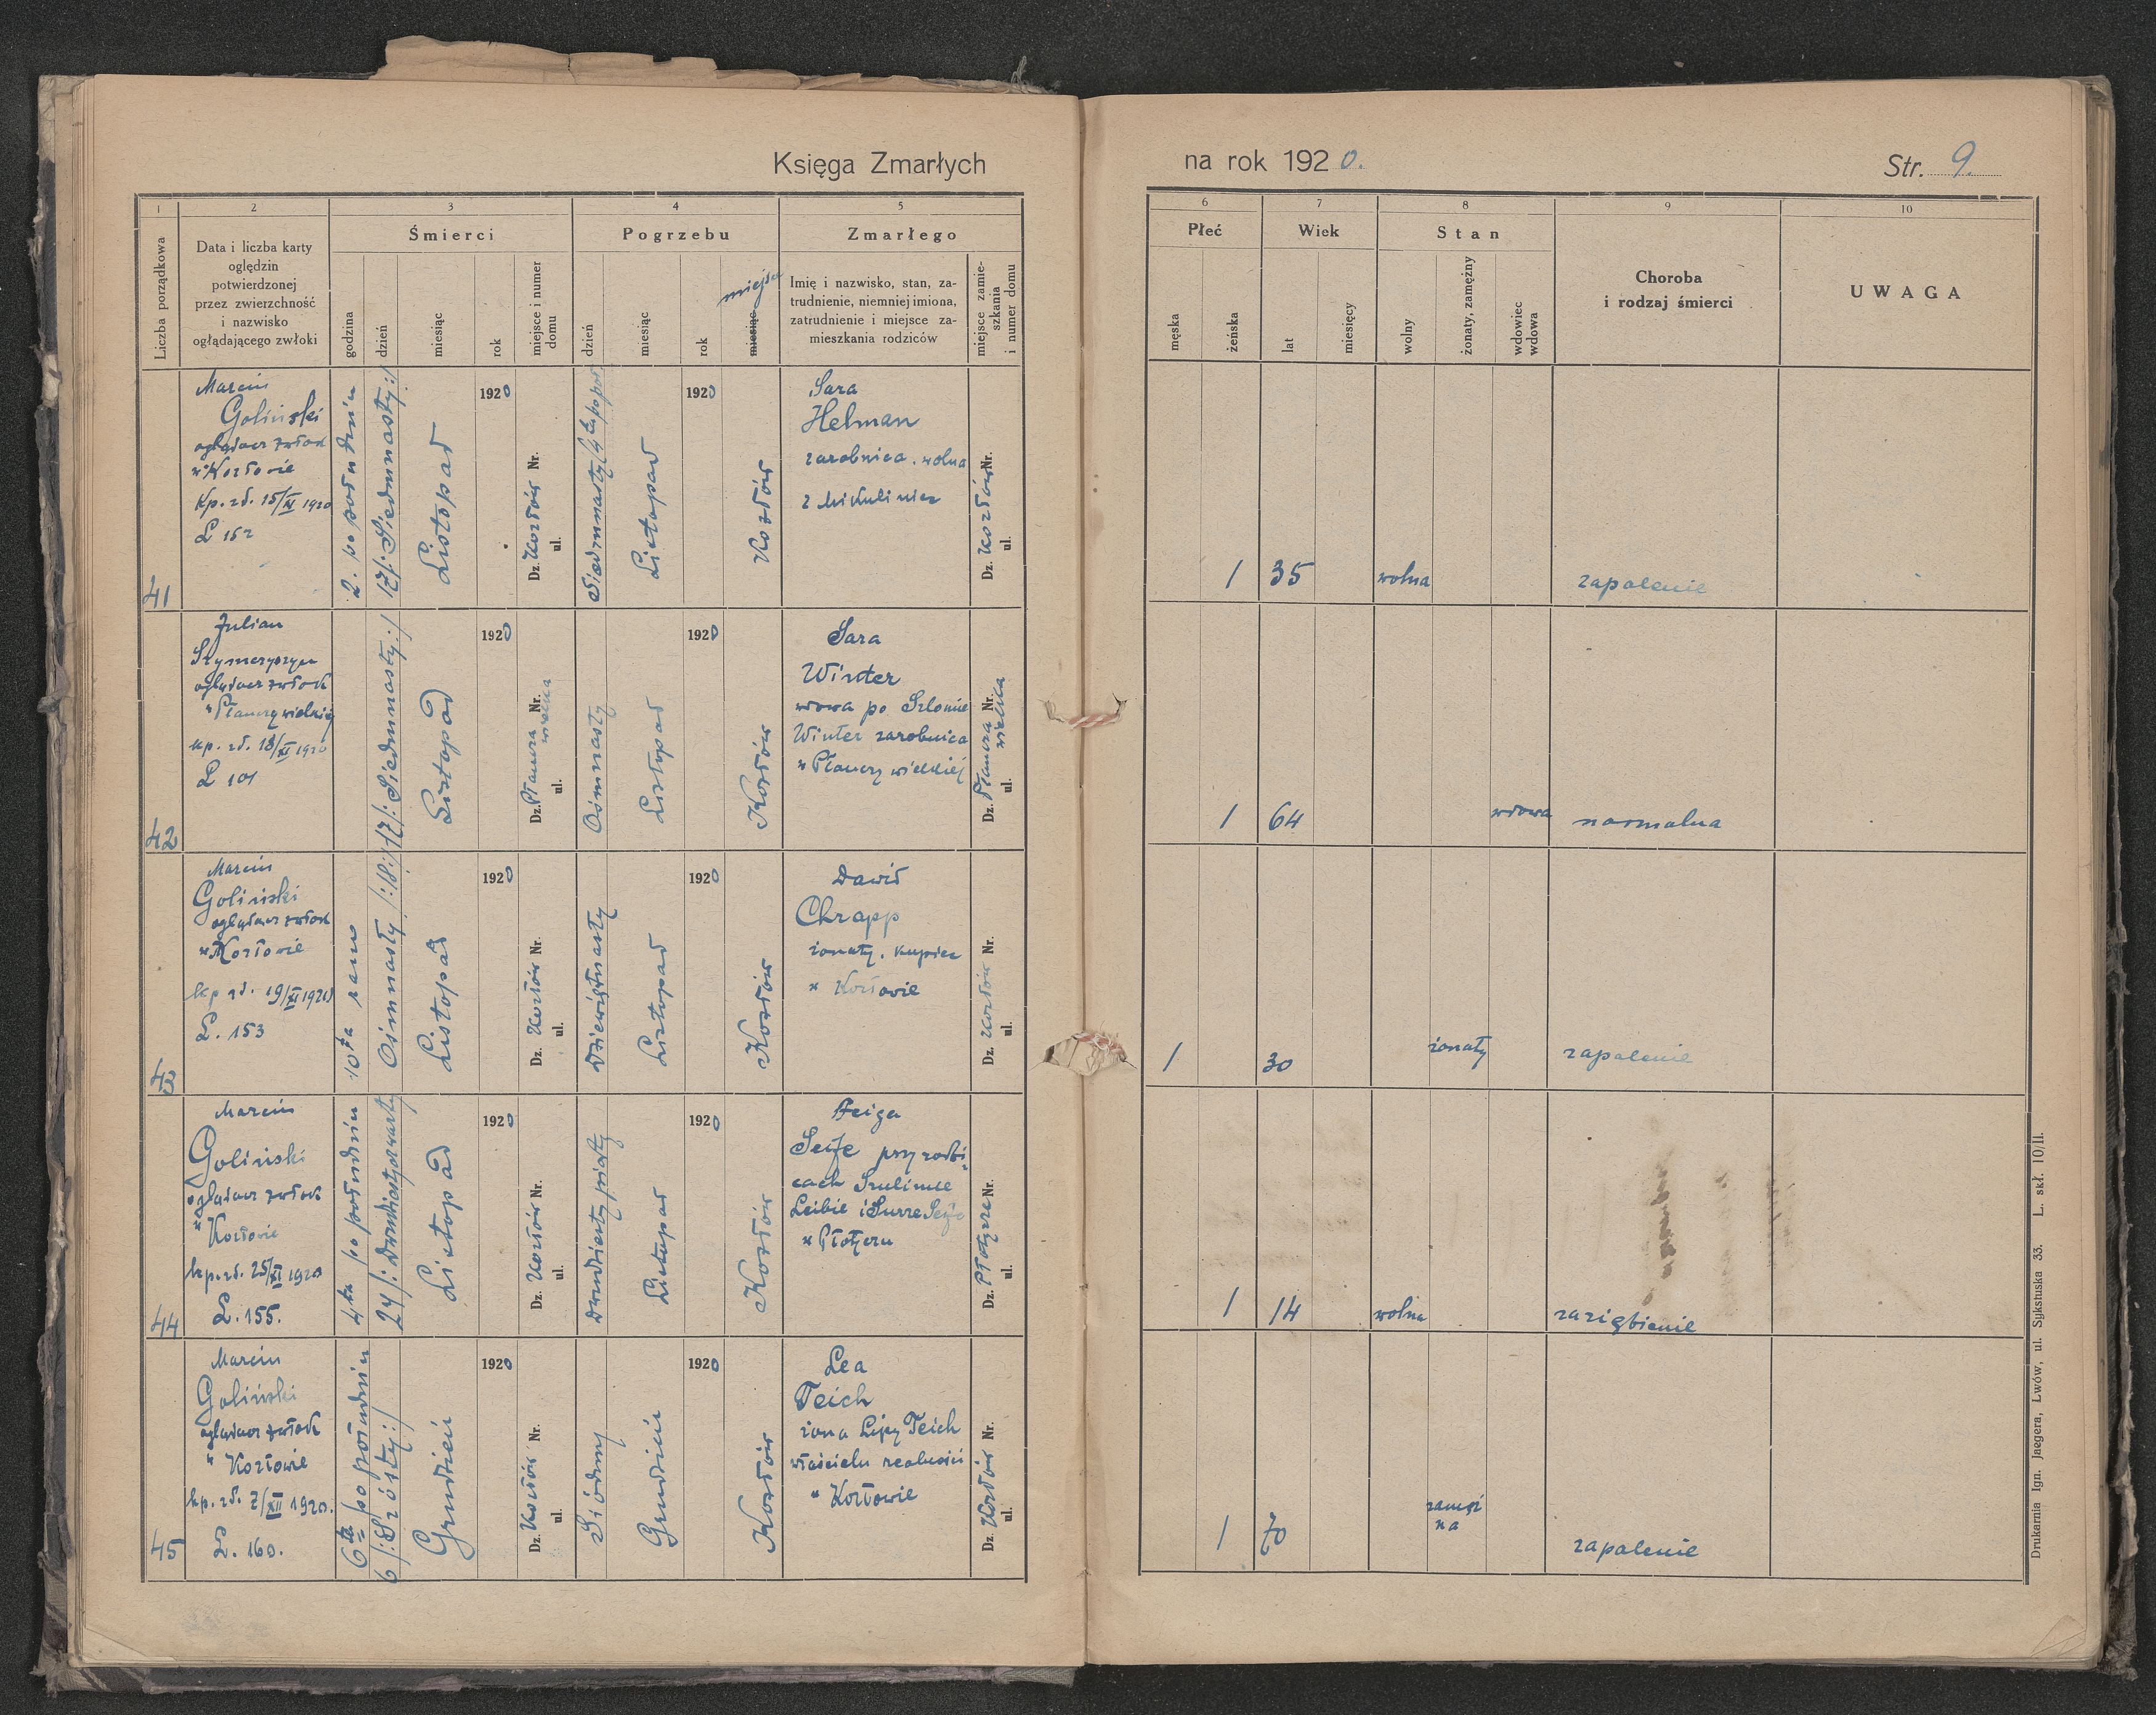 Księga Zmarłych
na rok 1920.
Str. 9.
1
2
3
4
5
6
7
8
9
10
Liczba porządkowa
Data i liczba karty
oględzin
potwierdzonej
przez zwierzchność
i nazwisko
oglądającego zwłoki
Śmierci
godzina
dzień
miesiąc
rok
miejsce i numer
domu
Pogrzebu
dzień
miesiąc
rok
miesiąc
miejsce
Zmarłego
Imię i nazwisko, stan, za-
trudnienie, niemniej imiona,
zatrudnienie i miejsce za-
mieszkania rodziców
miejsce zamie-
szkania
i numer domu
Płeć
męska
żeńska
Wiek
lat
miesięcy
Stan
wolny
żonaty, zamężny
wdowiec
wdowa
Choroba
i rodzaj śmierci
UWAGA
41
Marcin
Goliński
oglądacz zwłok
w Kozłowie
kp. zd. 15/XI 1920
L 152
2. po południu
17/: Siedmnasty:/
Listopad
1920
Dz. Kozłów Nr.
ul.
Siedmnasty
Listopad
1920
Kozłów
Sara
Helman
zarobnica. wolna
z Mikuliniec
Dz. Kozłów Nr.
ul.
1
35
wolna
zapalenie
42
Julian
oglądacz zwłok
w Płauczy wielkiej
kp. zd. 18/XI 1920
L 101
17/: Siedmnasty:/
Listopad
1920
Dz. Płaucza Nr.
wielka
ul.
Ośmnasty
Listopad
1920
Kozłów
Sara
Winter
wdowa po Szlomie
Winter zarobnica
w Płauczy wielkiej
Dz. Płaucza Nr.
wielka
ul.
1
64
wdowa
normalna
43
Marcin
Goliński
oglądacz zwłok
w Kozłowie
kp zd. 19/XI 1920
L. 153
10ta rano
Ośmnasty /:18:/
Listopad
1920
Dz. Kozłów Nr.
ul.
Dziewiętnasty
Listopad
1920
Kozłów
Dawid
Chrapp
żonaty. kupiec
w Kozłowie
Dz. Kozłów Nr.
ul.
1
30
żonaty
zapalenie
44
Marcin
Goliński
oglądacz zwłok
w
Kozłowie
kp. zd. 25/XI 1920
L. 155.
4ta po południu
24/: dwudziestyczwarty
Listopad
1920
Dz. Kozłów Nr.
ul.
Dwudziesty piąty
Listopad
1920
Kozłów
Feiga
Seife przy rodzi-
cach Szulimie
Leibie i Surze Seife
w Płotyczu
Dz. Płotycze Nr.
ul.
1
14
wolna
zaziębienie
45
Marcin
Goliński
oglądacz zwłok
w Kozłowie
kp. zd. 7/XII 1920.
L. 160.
6ta po południu
6/: Szósty:/
Grudzień
1920
Dz. Kozłów Nr.
ul.
Siódmy
Grudzień
1920
Kozłów
Lea
Teich
żona Lipy Teich
właściciela realności
w Kozłowie
Dz. Kozłów Nr.
ul.
1
70
zamęż
na
zapalenie
Drukarnia Ign. Jaegera, Lwów, ul. Sykstuska 33. L. skł. 10/II.